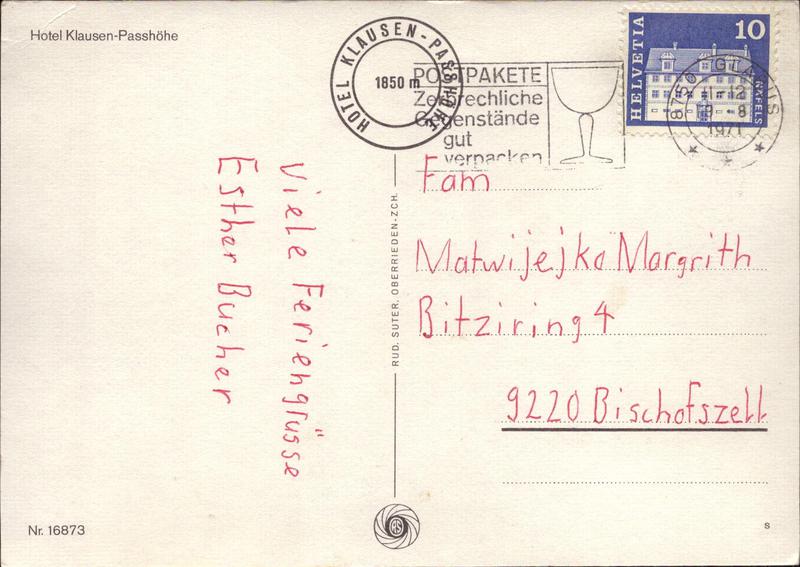 Hotel Klausen-Passhöhe
HOTEL KLAUSEN-PASSHÖHE
1850 m
POSTPAKETE
Zerbrechliche
Gegenstände
gut
verpacken
HELVETIA
10
NÄFELS
8750 GLARUS
11-12
1971
Viele Feriengrüsse
Esther Bucher
RUD. SUTER, OBERRIEDEN-ZCH.
Fam
Matwijejko Margrith
Bitziring 4
9220 Bischofszell
Nr. 16873
s